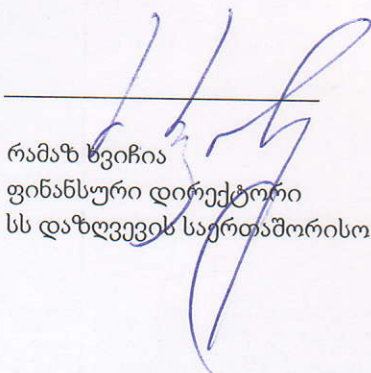 რამაზ ხვიჩია
ფინანსური დირექტორი
სს დაზღვევის საერთაშორისო